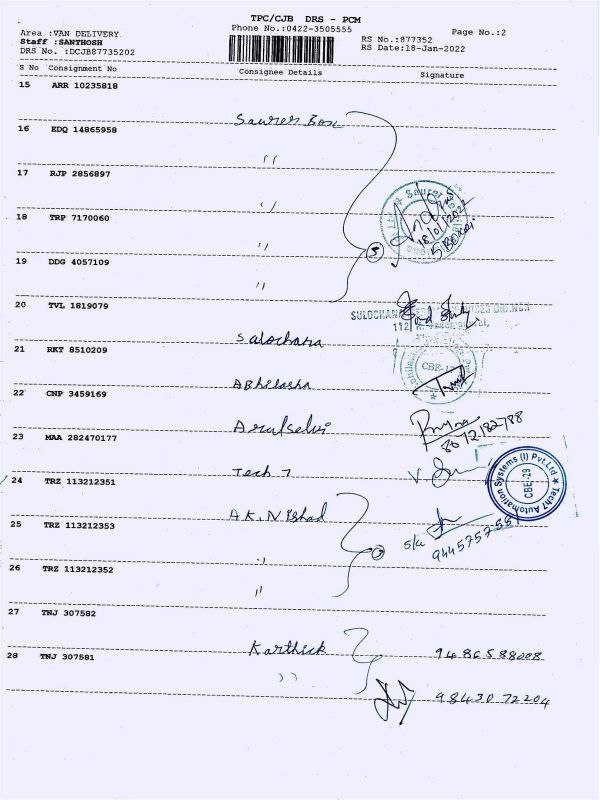 TPC/CJB DRS - PCM
Area :VAN DELIVERY
Phone No.:0422-3505555
Page No.:2
Staff :SANTHOSH
RS No.:877352
DRS No. :DCJB87735202
RS Date:18-Jan-2022
S No Consignment No
Consignee Details
Signature
15 ARR 10235818
Saurer
16 EDQ 14865958
"
17 RJP 2856897
"
18 TRP 7170060
18/01/2022
"
5
19 DDG 4057109
"
20 TVL 1819079
SULOCHANA
112
Salochana
21 RKT 8510209
CBE-
Abhilasha
22 CNP 3459169
Arulselvi
8072182788
23 MAA 282470177
Tech 7
24 TRZ 113212351
Tech7 Automation Systems (I) Pvt.Ltd
CBE-29
A.K. Nishad
25 TRZ 113212353
"
26 TRZ 113212352
"
27 TNJ 307582
Karthick
9486588008
28 TNJ 307581
"
9843072204